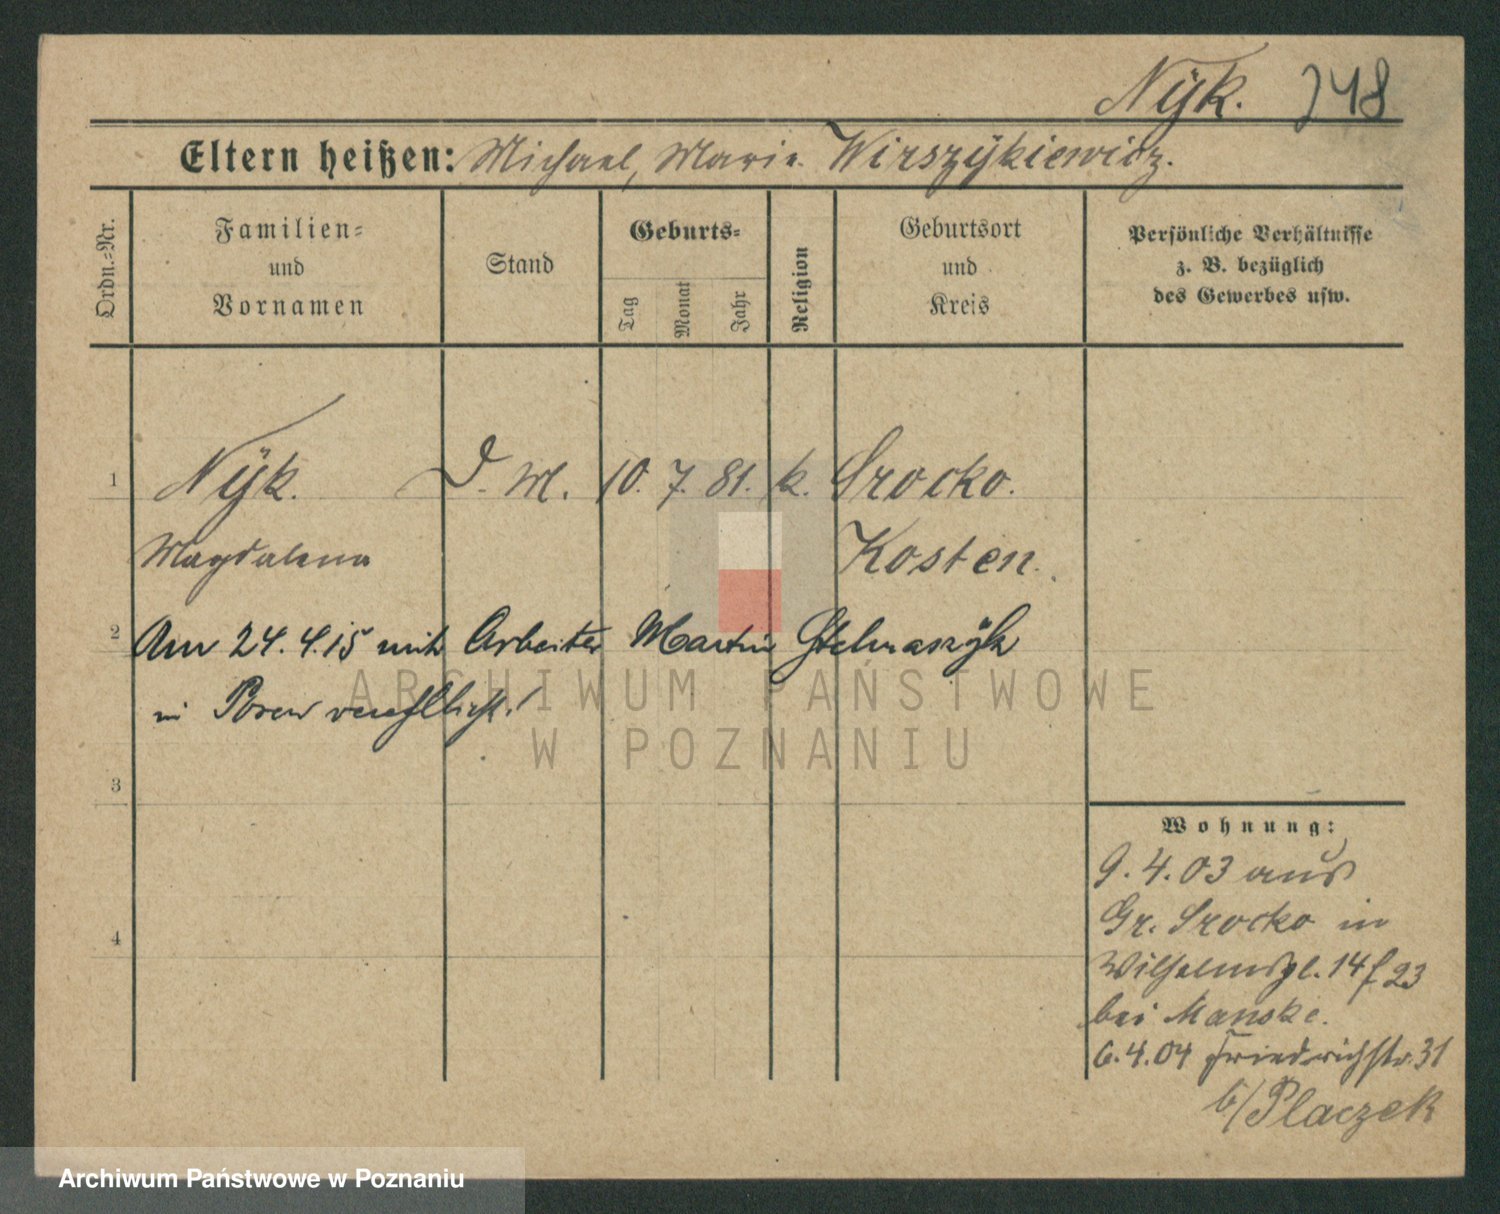 Nÿk. 748
Eltern heißen: Michael, Marie Wirszÿkiewicz.
Ordn.=Nr.
Familien=
und
Vornamen
Stand
Geburts=
Tag
Monat
Jahr
Religion
Geburtsort
und
Kreis
Persönliche Verhältnisse
z. B. bezüglich
des Gewerbes usw.
1 Nÿk. D. M. 10. 7. 81. k. Srocko.
Magdalena Kosten.
2 Am 24. 4. 15 mit Arbeiter Martin Stelmaszÿk
in Posen verehelicht!
ARCHIWUM PAŃSTWOWE
W POZNANIU
3
4
Wohnung:
9. 4. 03 aus
Gr. Srocko in
Wilhelmspl. 14 f 23
bei Manske.
6. 4. 04 Friedrichstr. 31
b/ Placzek
Archiwum Państwowe w Poznaniu